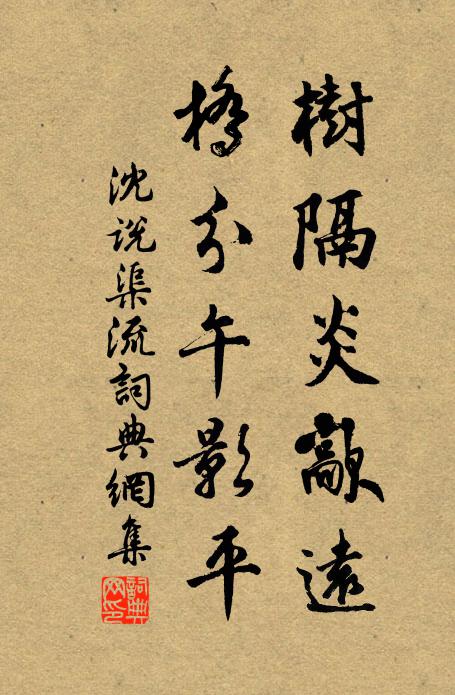 樹隔炎歊遠
橋分午影平
沈説渠流詞典網集
詞典網印